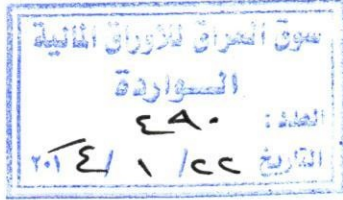 سوق العراق للاوراق المالية
الـــواردة
العدد : ٤٩٠
التاريخ ٢٢/ ١ /٢٠١٤